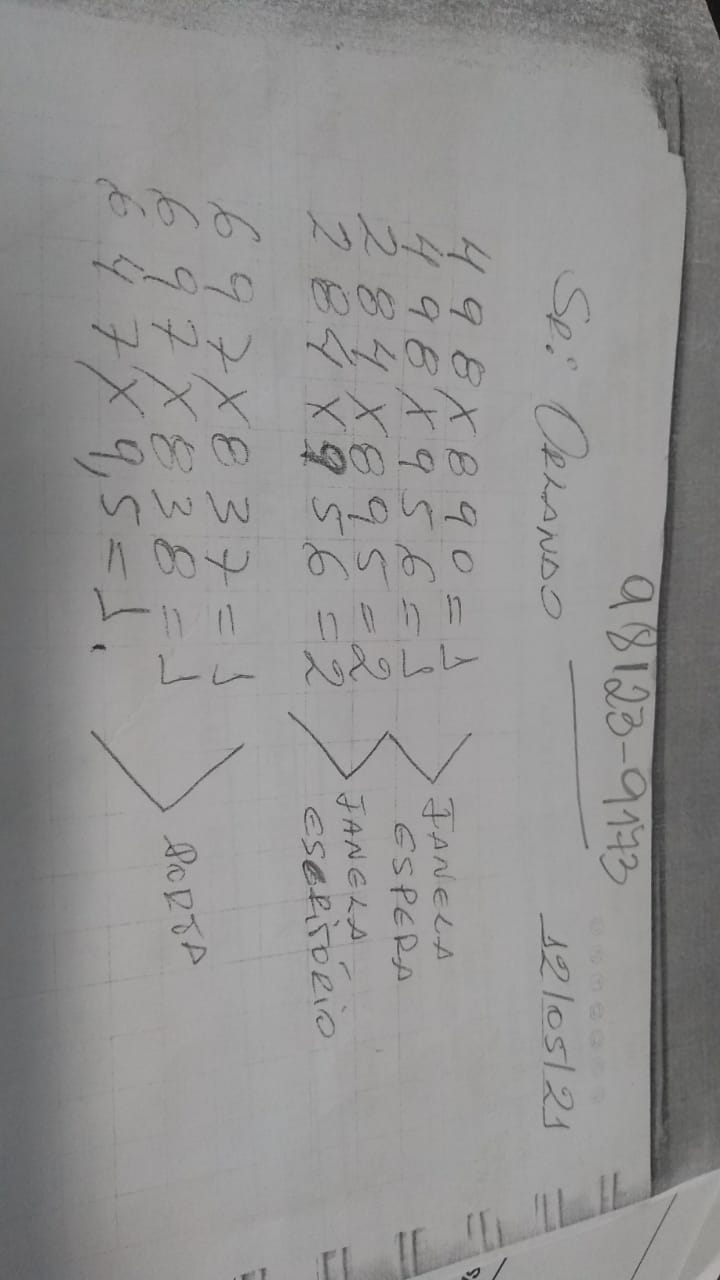 98123-9173
Sr: Orlando 12/05/21
498x890=1
498x956=1
JANELA ESPERA
284x895=2
284x956=2
JANELA ESCRITÓRIO
697x837=1
697x838=1
647x9,5=1.
PORTA